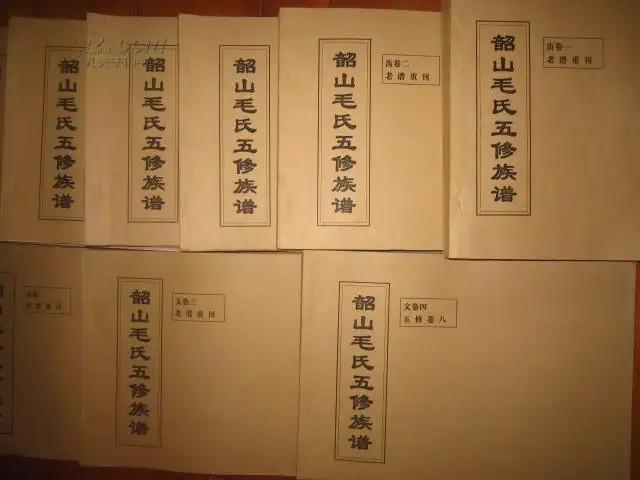 韶山毛氏五修族谱
韶山毛氏五修族谱
韶山毛氏五修族谱
韶山毛氏五修族谱
齿卷二
老谱重刊
韶山毛氏五修族谱
齿卷一
老谱重刊
老谱重刊
韶山毛氏五修族谱
文卷三
老谱重刊
韶山毛氏五修族谱
文卷四
五修卷八